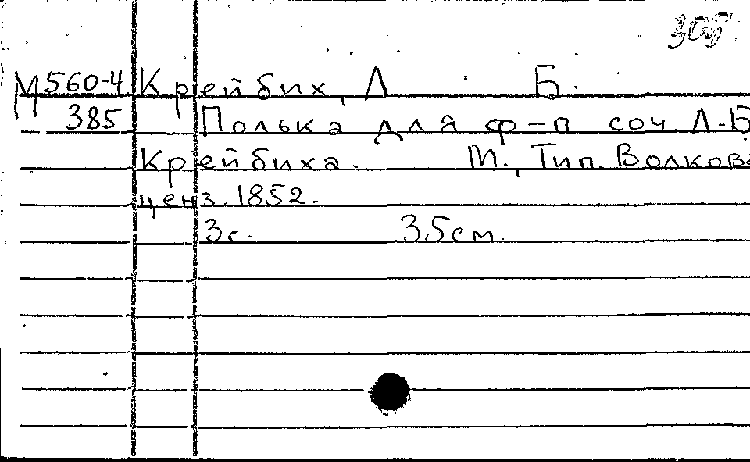 М 560-4 Крейбих, Л Б.
385 Полька для ф-п соч Л.Б
Крейбиха. М., Тип. Волкова
ценз. 1852.
3с. 35см.